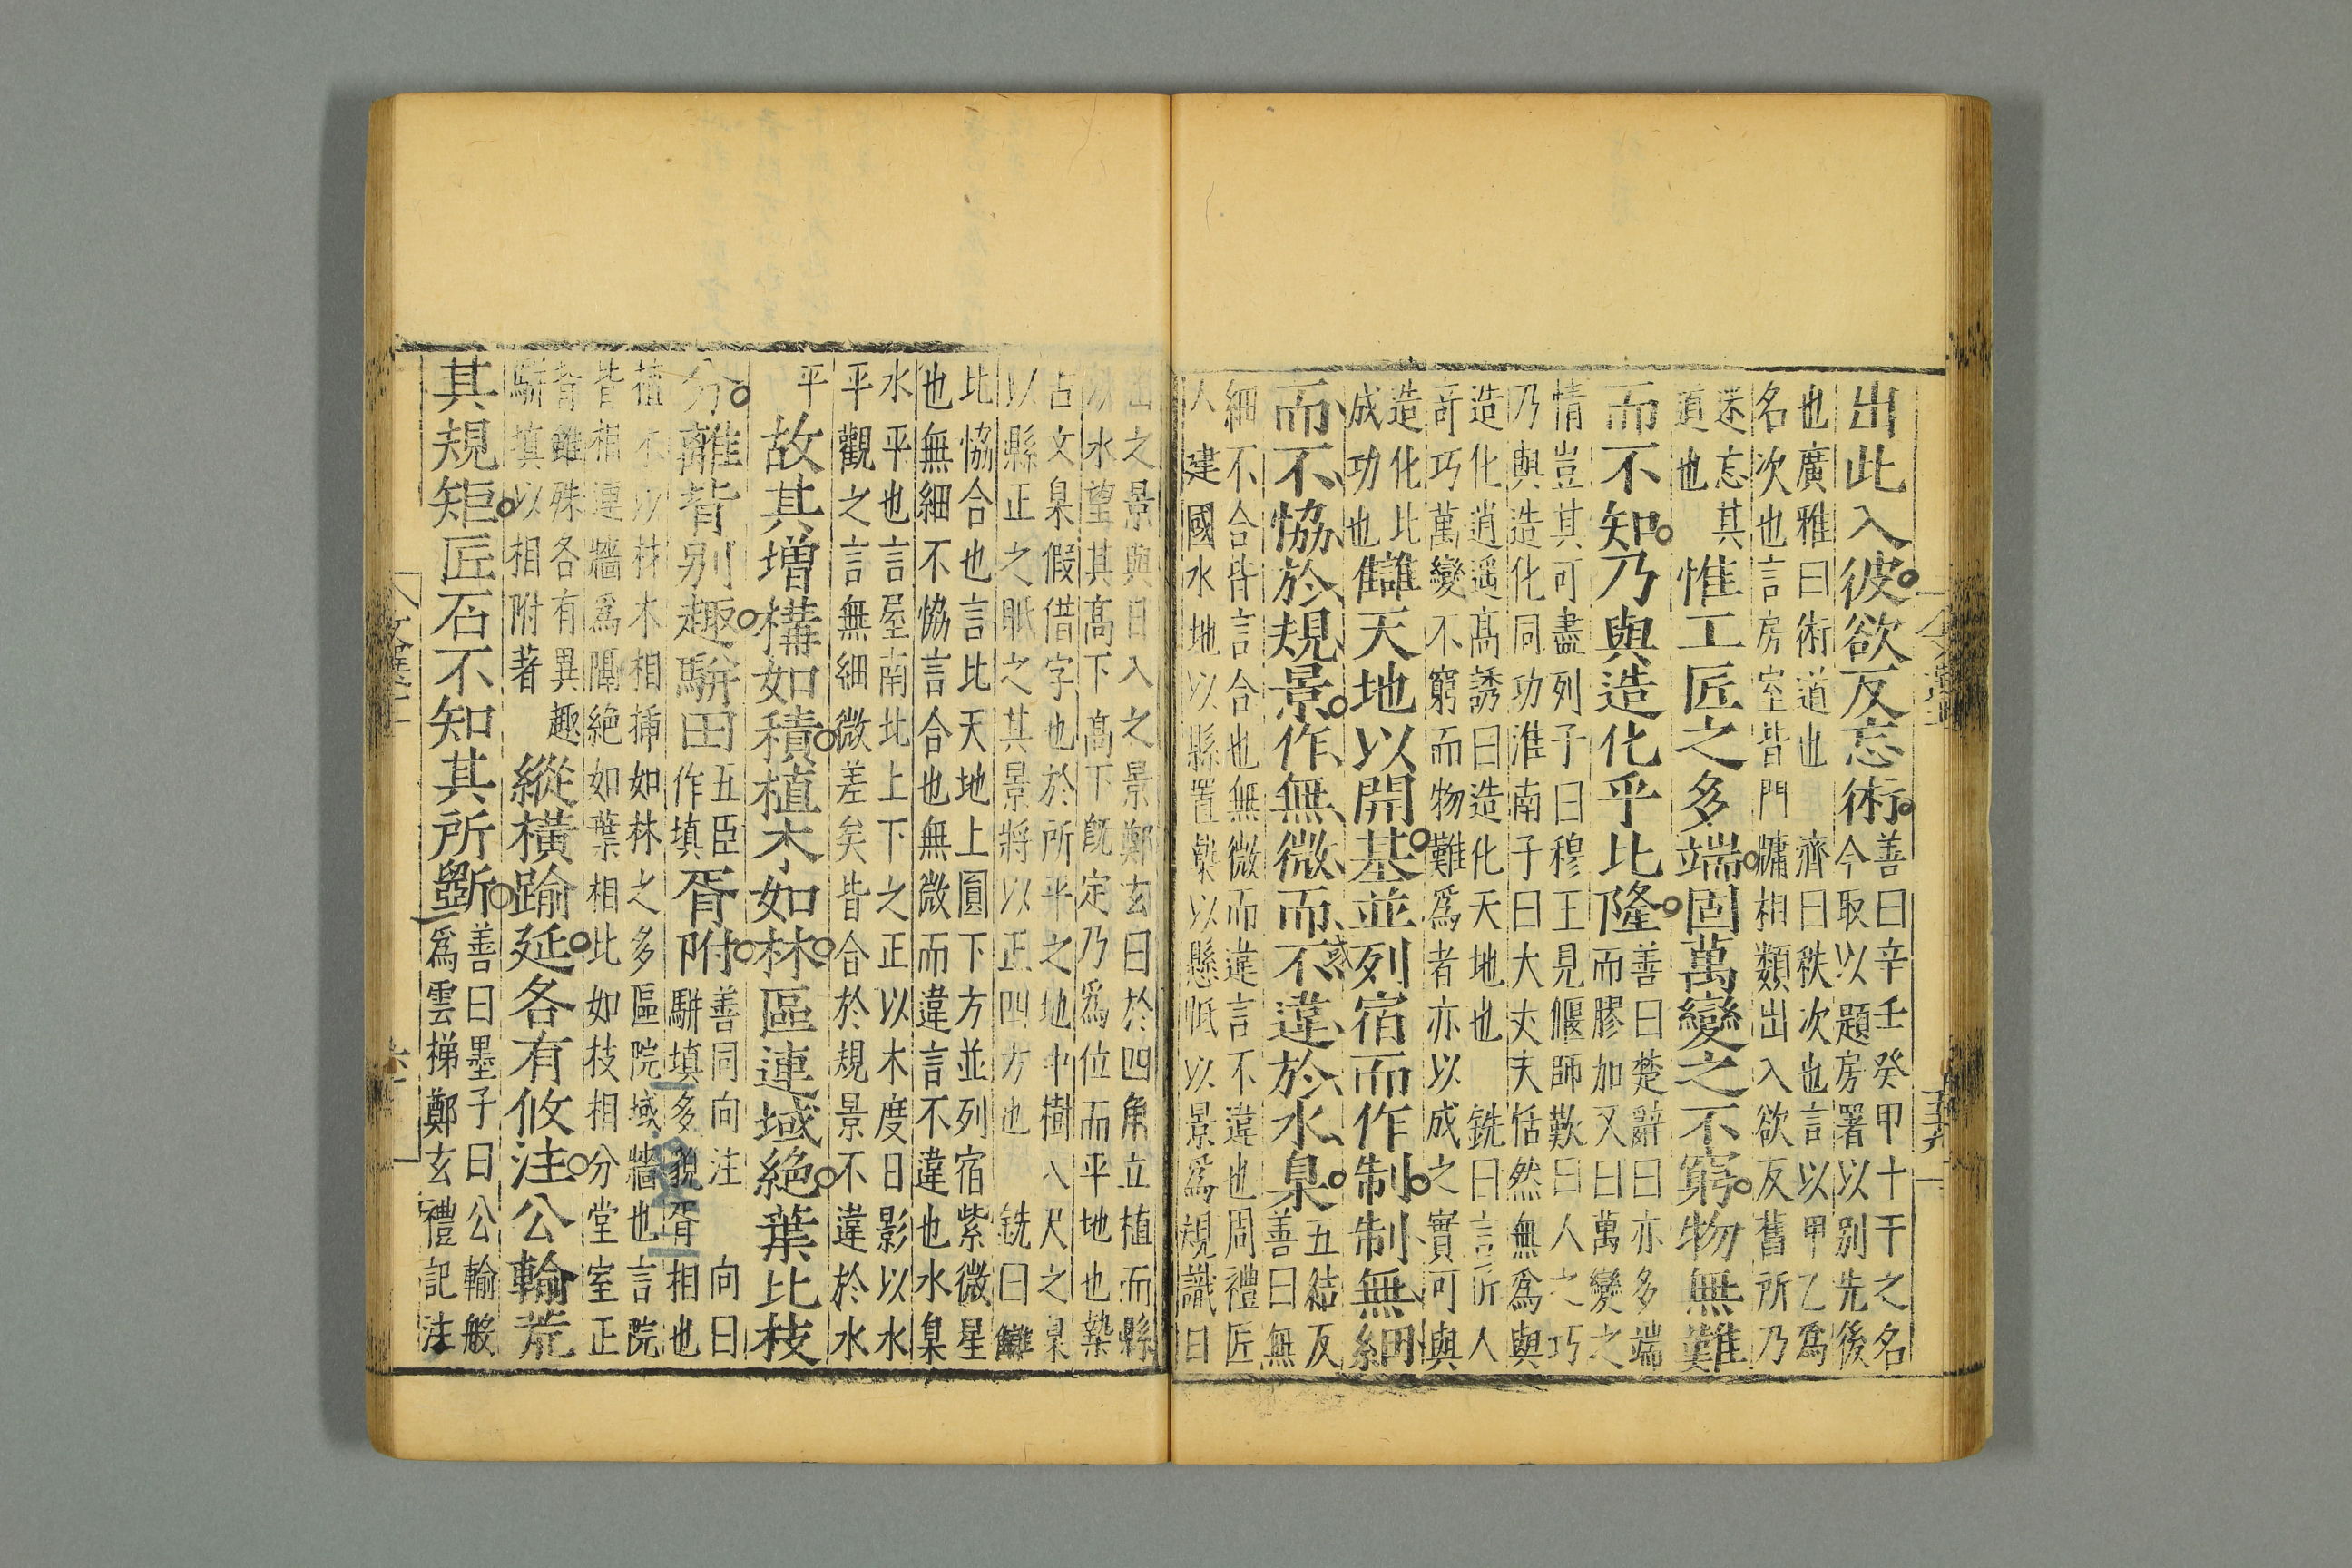 出此入彼欲反忘術
善曰辛壬癸甲十干之名
今取以題房署以別先後
也廣雅曰術道也 濟曰秩次也言以甲乙爲
名次也言房室皆門牗相類出入欲反舊所乃
迷忘其
道也
惟工匠之多端固萬變之不窮物無難
而不知乃與造化乎比隆
善曰楚辭曰亦多端
而膠加又曰萬變之
情豈其可盡列子曰穆王見偃師歎曰人之巧
乃與造化同功淮南子曰大丈夫恬然無爲與
造化逍遥高誘曰造化天地也 銑曰言匠人
奇巧萬變不窮而物難爲者亦以成之實可與
造化比
成功也
讎天地以開基並列宿而作制制無細
而不恊於規景作無微而不違於水臬
五結反
善曰無
細不合皆言合也無微而違言不違也周禮匠
人建國水地以縣置槷以懸眡以景爲規識日
出之景與日入之景鄭玄曰於四角立植而縣
以水望其高下高下旣定乃爲位而平地也槷
古文臬假借字也於所平之地中樹八尺之臬
以縣正之眡之其景將以正四方也 銑曰讎
比恊合也言比天地上圓下方並列宿紫微星
也無細不恊言合也無微而違言不違也水臬
水平也言屋南北上下之正以木度日影以水
平觀之言無細微差矣皆合於規景不違於水
平
故其增構如積植木如林區連域絶葉比枝
分離背別趣駢田
五臣
作填
胥附
善同向注 向曰
駢填多貌胥相也
植木以材木相揷如林之多區院域牆也言院
皆相連牆爲隔絶如葉相比如枝相分堂室正
背雖殊各有異趣
駢填以相附著
縱橫踰延各有攸注公輸荒
其規矩匠石不知其所斲
善曰墨子曰公輸般
爲雲梯鄭玄禮記注